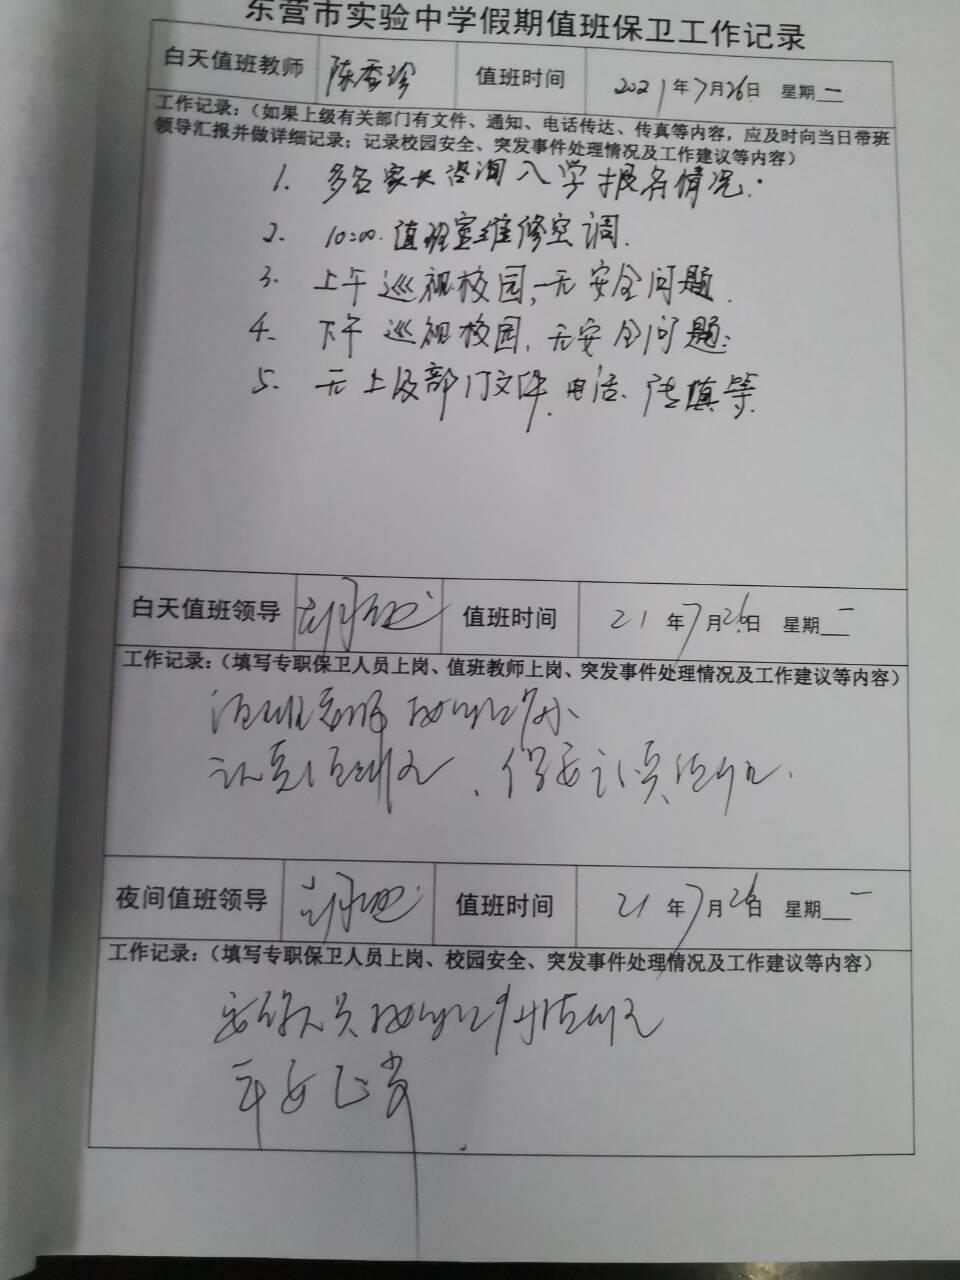 东营市实验中学假期值班保卫工作记录
白天值班教师 陈秀珍 值班时间 2021年7月26日 星期二
工作记录：（如果上级有关部门有文件、通知、电话传达、传真等内容，应及时向当日带班
领导汇报并做详细记录；记录校园安全、突发事件处理情况及工作建议等内容）
1. 多名家长咨询入学报名情况.
2. 10:00.值班室维修空调.
3. 上午巡视校园,无安全问题.
4. 下午巡视校园,无安全问题.
5. 无上级部门文件、电话、传真等.
白天值班领导 值班时间 21年7月26日 星期一
工作记录：（填写专职保卫人员上岗、值班教师上岗、突发事件处理情况及工作建议等内容）
值班老师按时到岗
认真值班 、保安认真值班.
夜间值班领导 值班时间 21年7月26日 星期一
工作记录：（填写专职保卫人员上岗、校园安全、突发事件处理情况及工作建议等内容）
安保人员按时到岗值班
平安正常